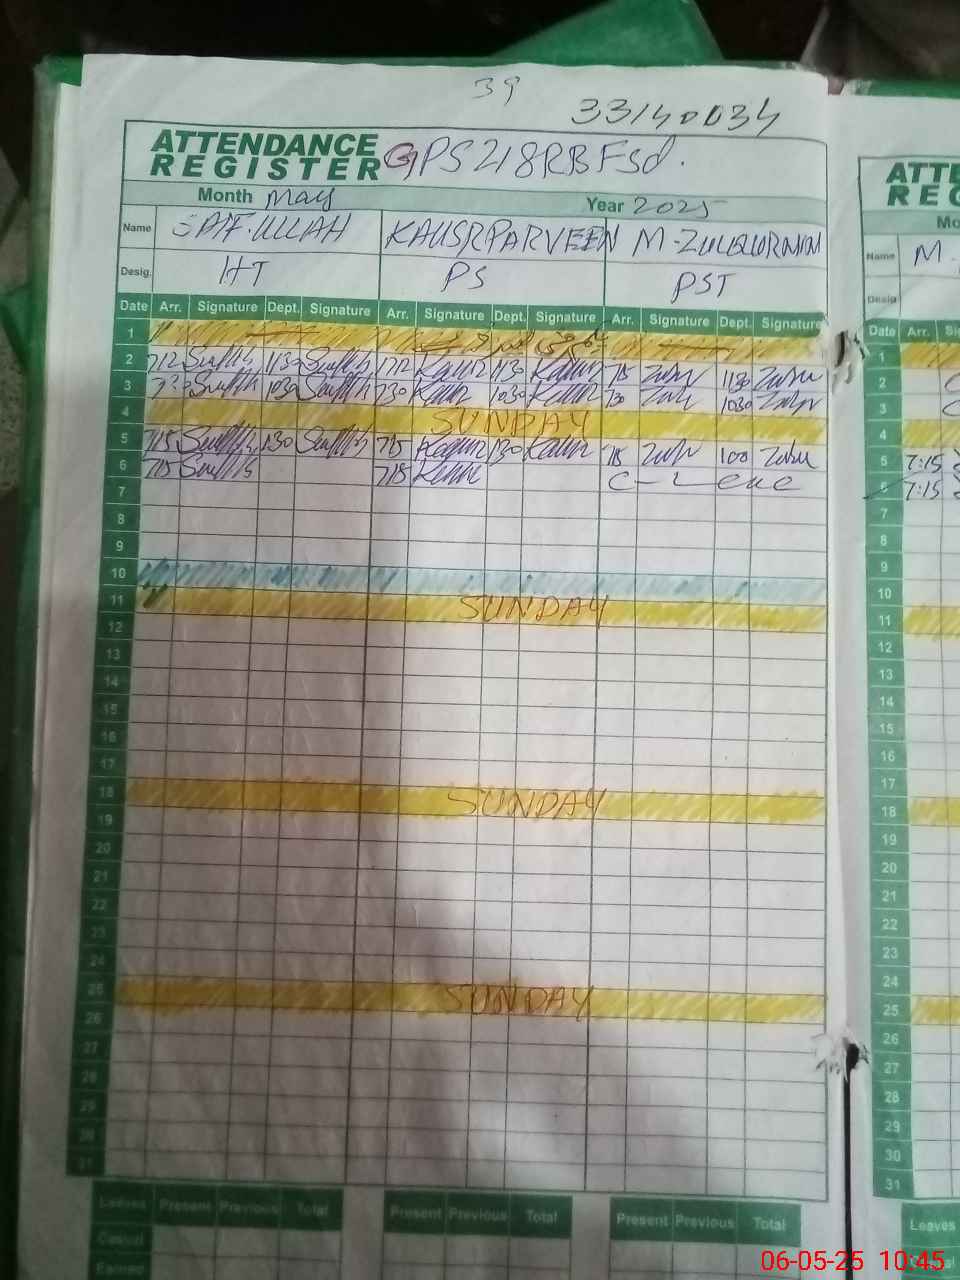 39
33140034
ATTENDANCE
REGISTER GPS 218RB Fsd.
Month May Year 2025
Name SAIF.ULLAH KAUSR PARVEEN M-ZULQURNAIN
Desig. HT PS PST
Date Arr. Signature Dept. Signature Arr. Signature Dept. Signature Arr. Signature Dept. Signature
1
2 712 1130 712 Kausr 1130 Kausr 715 1130
3 730 1030 730 Kausr 1030 Kausr 730 1030
4 SUNDAY
5 715 130 715 Kausr 130 Kausr 715 100
6 715 715 Kausr C-Leave
7
8
9
10
11 SUNDAY
12
13
14
15
16
17
18 SUNDAY
19
20
21
22
23
24
25 SUNDAY
26
27
28
29
30
31
Leaves Present Previous Total Present Previous Total Present Previous Total
Casual
Earned
ATTE
REG
Mo
Name M.
Desig
Date Arr. Si
1
2
3
4
5 7:15
6 7:15
7
8
9
10
11
12
13
14
15
16
17
18
19
20
21
22
23
24
25
26
27
28
29
30
31
Leaves
06-05-25 10:45